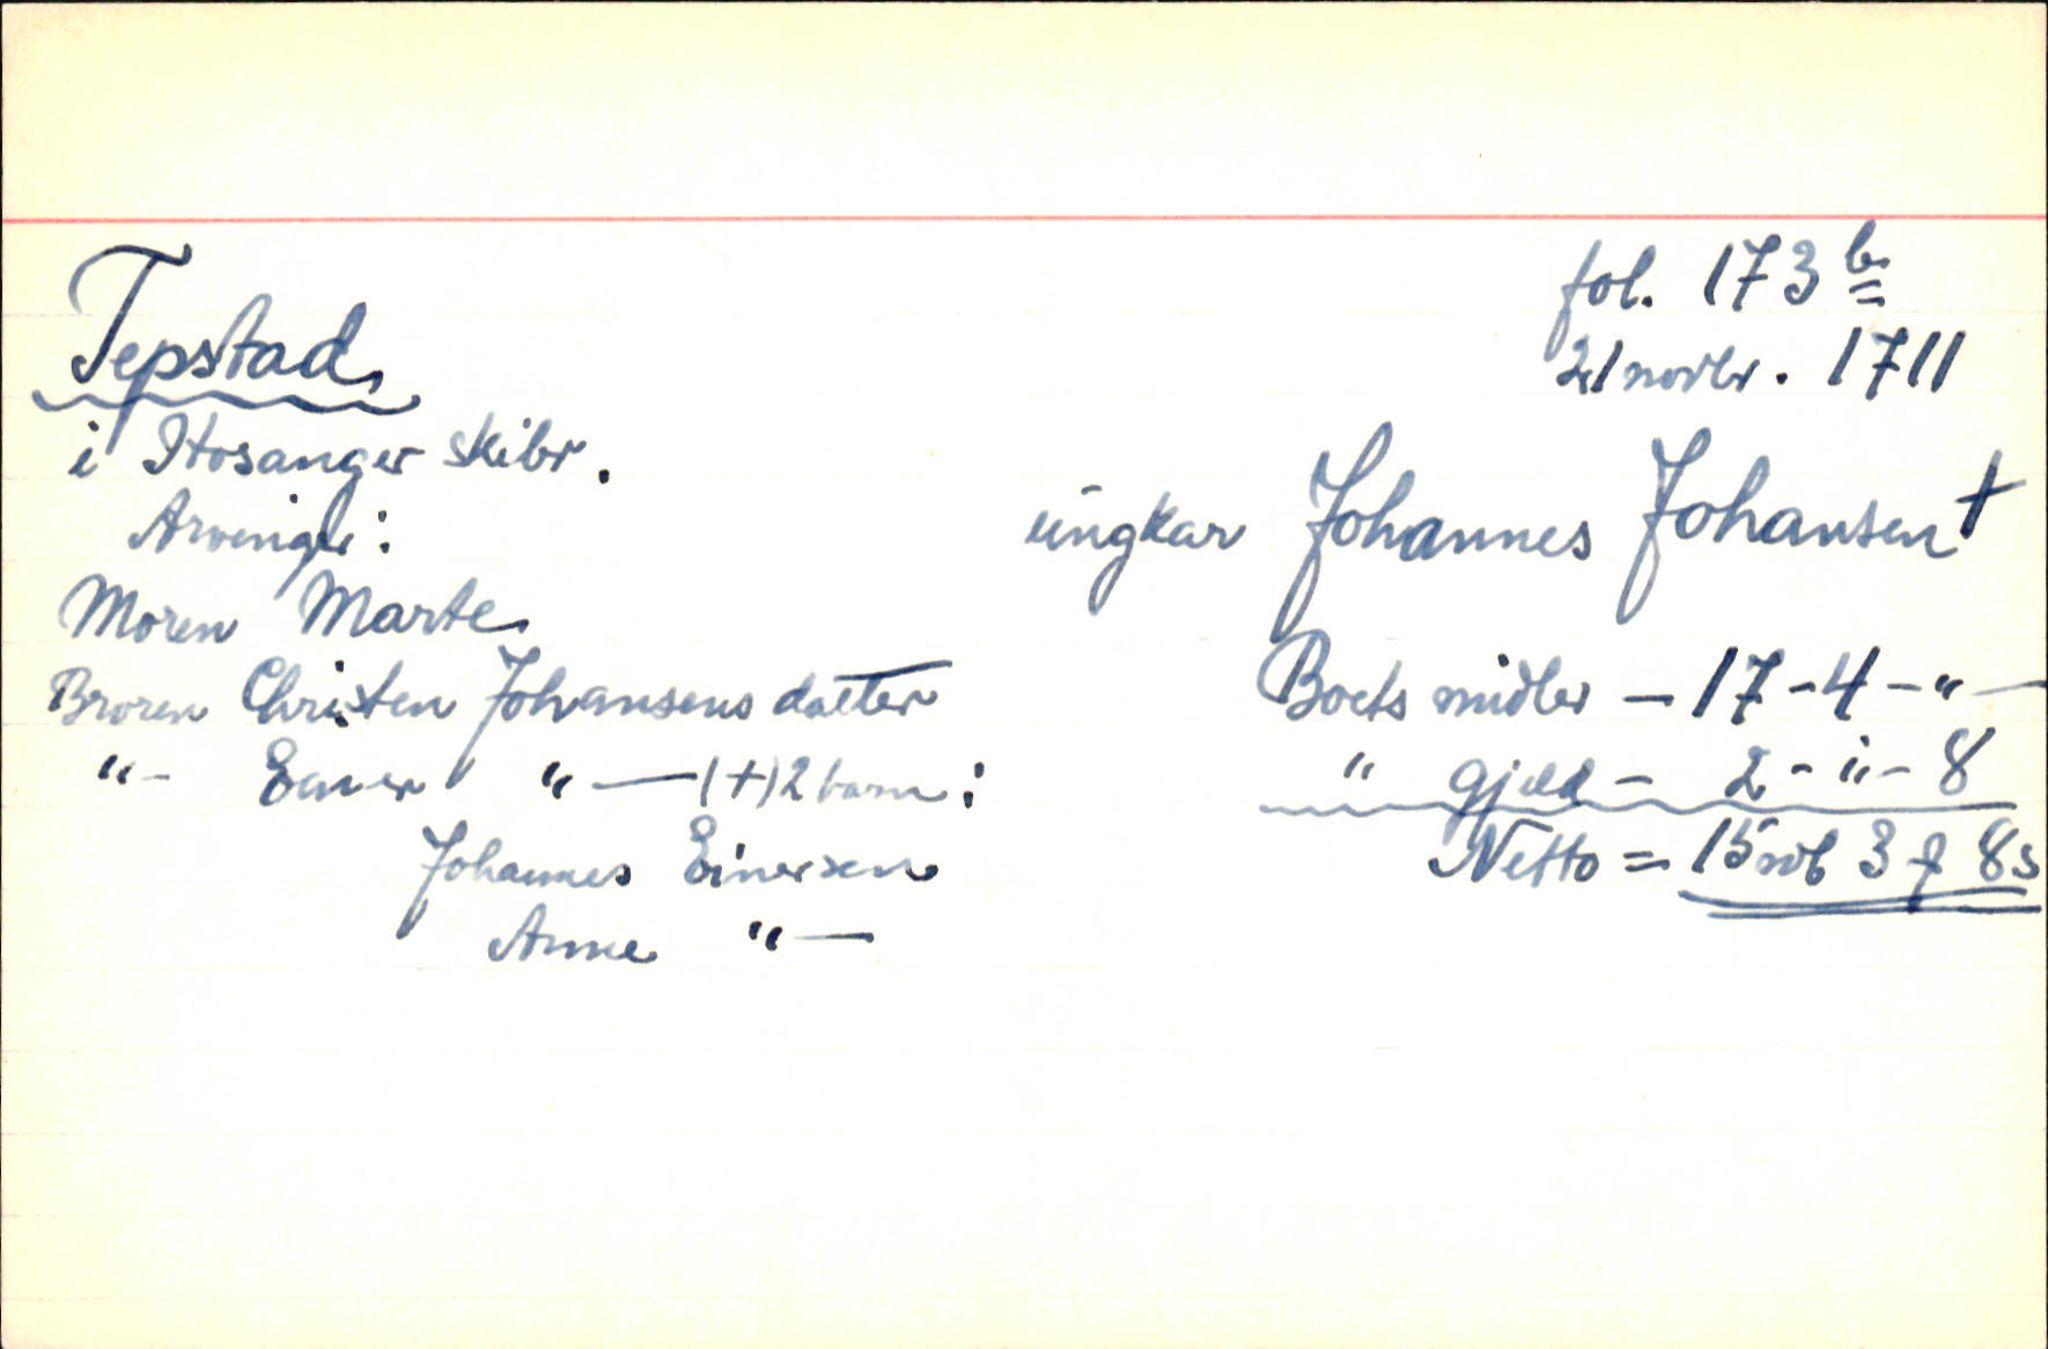 fol. 173 b
21 novbr. 1711
Tepstad
i Hosanger skibr.
ungkar Johannes Johansen †
Arvinger:
Moren Marte
Broren Christen Johansens datter
"- Einer " — (+) 2 barn:
Johannes Einersen
Anne " —
Boets midler — 17 - 4 - " —
" gjeld — 2 - " - 8
Netto = 15 rdl 3 ƒ 8 s